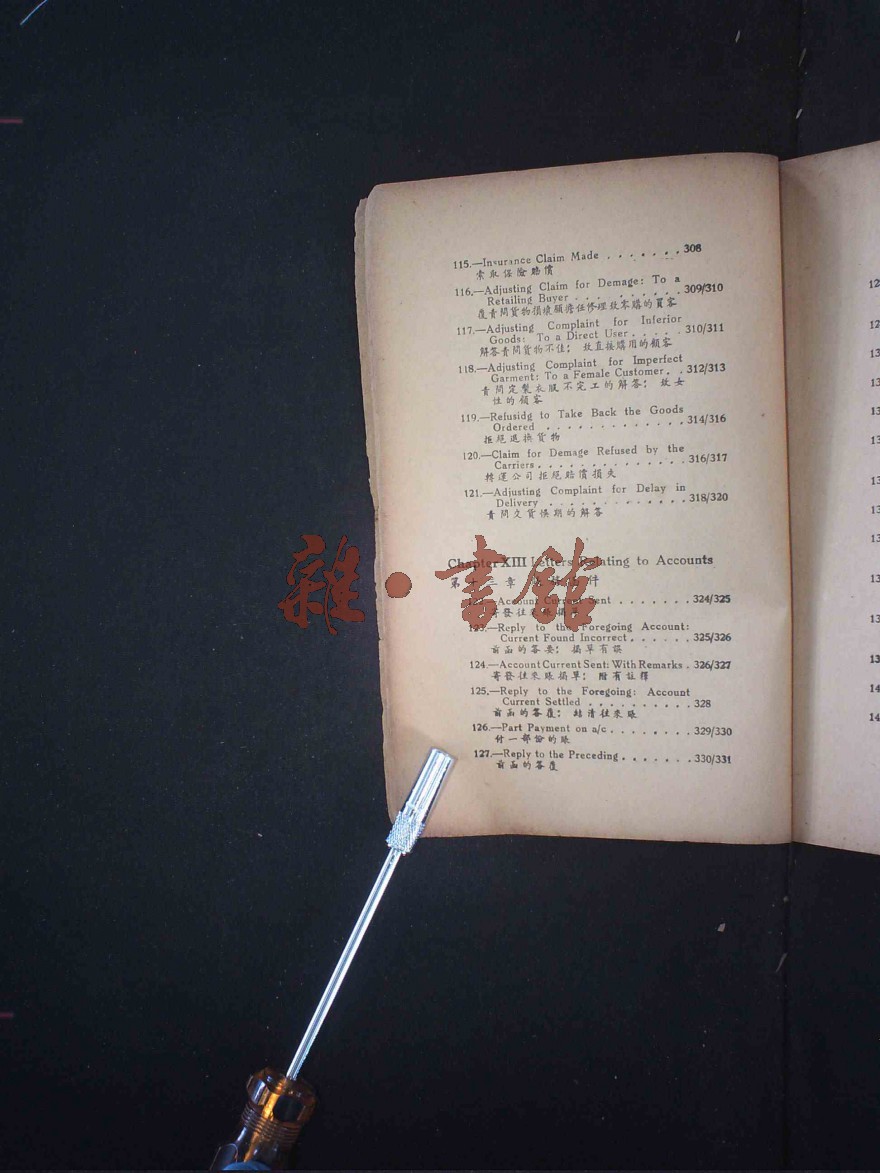 115.—Insurance Claim Made . . . . . . . 308
索取保險賠償
116.—Adjusting Claim for Demage: To a
Retailing Buyer . . . . . . . . . . 309/310
覆責問貨物損壞願擔任修理致零購的買客
117.—Adjusting Complaint for Inferior
Goods: To a Direct User . . . . . 310/311
解答責問貨物不佳：致直接購用的顧客
118.—Adjusting Complaint for Imperfect
Garment: To a Female Customer. . 312/313
責問定製衣服不完工的解答：致女
性的顧客
119.—Refusidg to Take Back the Goods
Ordered . . . . . . . . . . . . . 314/316
拒絕退換貨物
120.—Claim for Demage Refused by the
Carriers. . . . . . . . . . . . . . 316/317
轉運公司拒絕賠償損失
121.—Adjusting Complaint for Delay in
Delivery . . . . . . . . . . . . . 318/320
責問交貨悞期的解答
Chapter XIII Letters Relating to Accounts
第十三章 件
122.—Account Current Sent . . . . . . . 324/325
寄發往來賬
123.—Reply to the Foregoing Account:
Current Found Incorrect. . . . . . 325/326
前函的答覆：揭單有誤
124.—Account Current Sent: With Remarks . 326/327
寄發往來賬揭單：附有註釋
125.—Reply to the Foregoing: Account
Current Settled . . . . . . . . . . 328
前函的答覆：結清往來賬
126.—Part Payment on a/c. . . . . . . . 329/330
付一部份的賬
127.—Reply to the Preceding. . . . . . . 330/331
前函的答覆
雜·書館